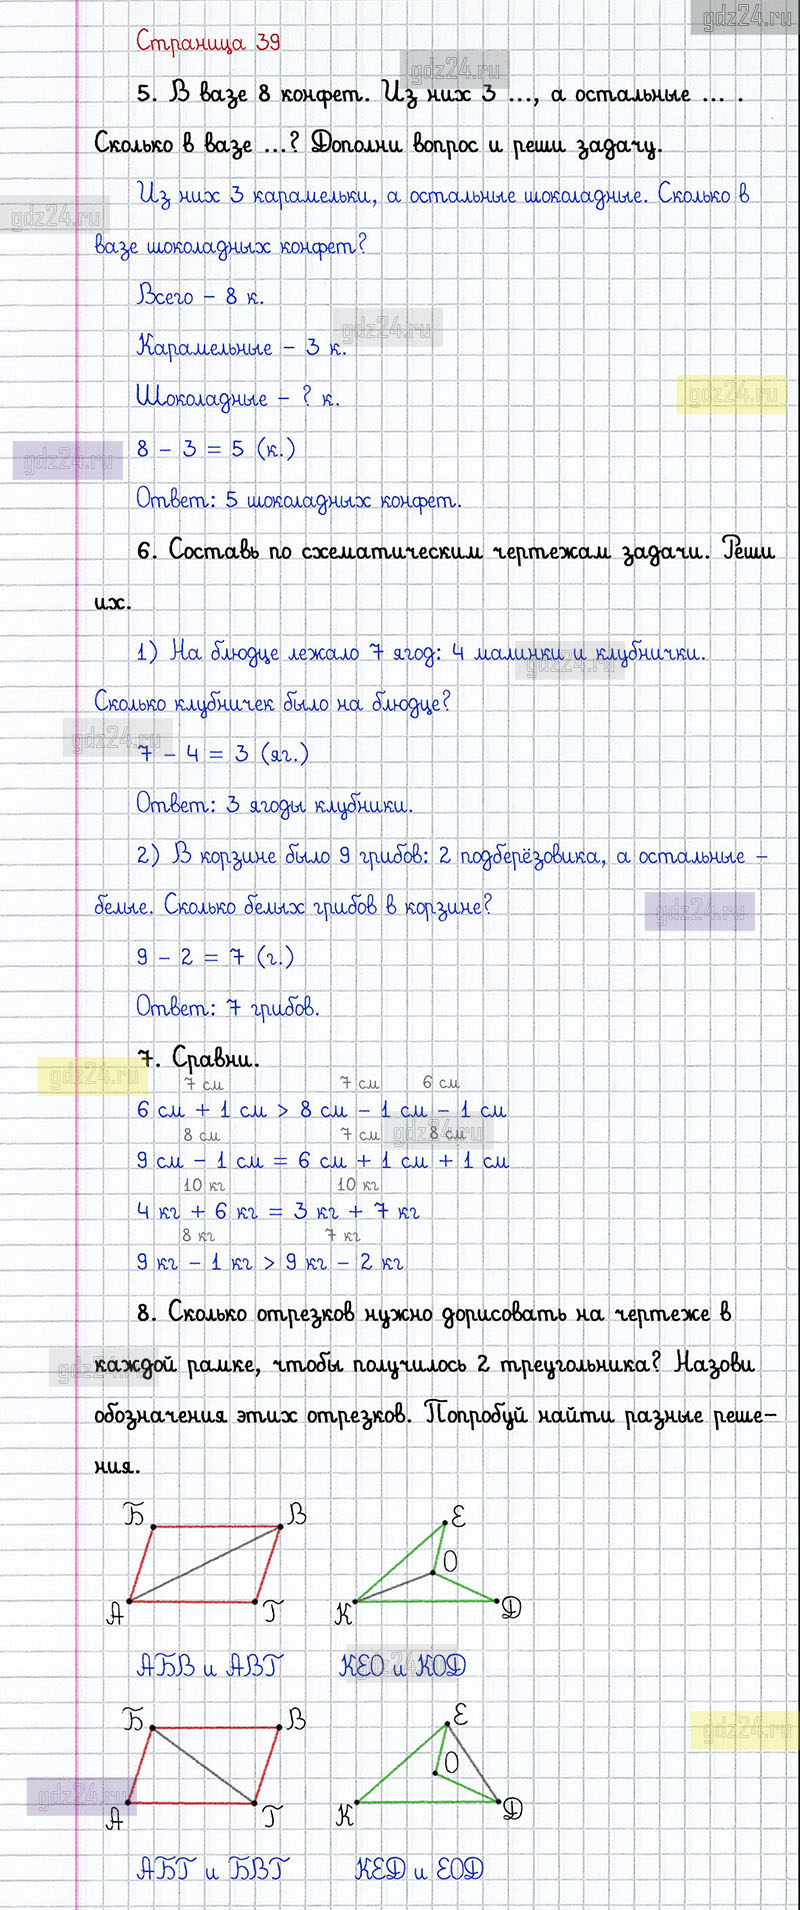 gdz24.ru
Страница 39
gdz24.ru
5. В вазе 8 конфет. Из них 3 ..., а остальные ... .
Сколько в вазе ...? Дополни вопрос и реши задачу.
Из них 3 карамельки, а остальные шоколадные. Сколько в
gdz24.ru
вазе шоколадных конфет?
Всего – 8 к.
gdz24.ru
Карамельные – 3 к.
Шоколадные – ? к.
gdz24.ru
8 – 3 = 5 (к.)
gdz24.ru
Ответ: 5 шоколадных конфет.
6. Составь по схематическим чертежам задачи. Реши
их.
1) На блюдце лежало 7 ягод: 4 малинки и клубнички.
gdz24.ru
Сколько клубничек было на блюдце?
gdz24.ru
7 – 4 = 3 (яг.)
Ответ: 3 ягоды клубники.
2) В корзине было 9 грибов: 2 подберёзовика, а остальные –
белые. Сколько белых грибов в корзине?
gdz24.ru
9 – 2 = 7 (г.)
Ответ: 7 грибов.
7. Сравни.
gdz24.ru
7 см 7 см 6 см
6 см + 1 см > 8 см – 1 см – 1 см
8 см 7 см 8 см
gdz24.ru
9 см – 1 см = 6 см + 1 см + 1 см
10 кг 10 кг
4 кг + 6 кг = 3 кг + 7 кг
8 кг 7 кг
9 кг – 1 кг > 9 кг – 2 кг
8. Сколько отрезков нужно дорисовать на чертеже в
gdz24.ru
каждой рамке, чтобы получилось 2 треугольника? Назови
обозначения этих отрезков. Попробуй найти разные реше-
ния.
Б В Е
О
А Г К Д
АБВ и АВГ КЕО и КОД
gdz24.ru
Б В Е
gdz24.ru
О
gdz24.ru
А Г К Д
АБГ и БВГ КЕД и ЕОД